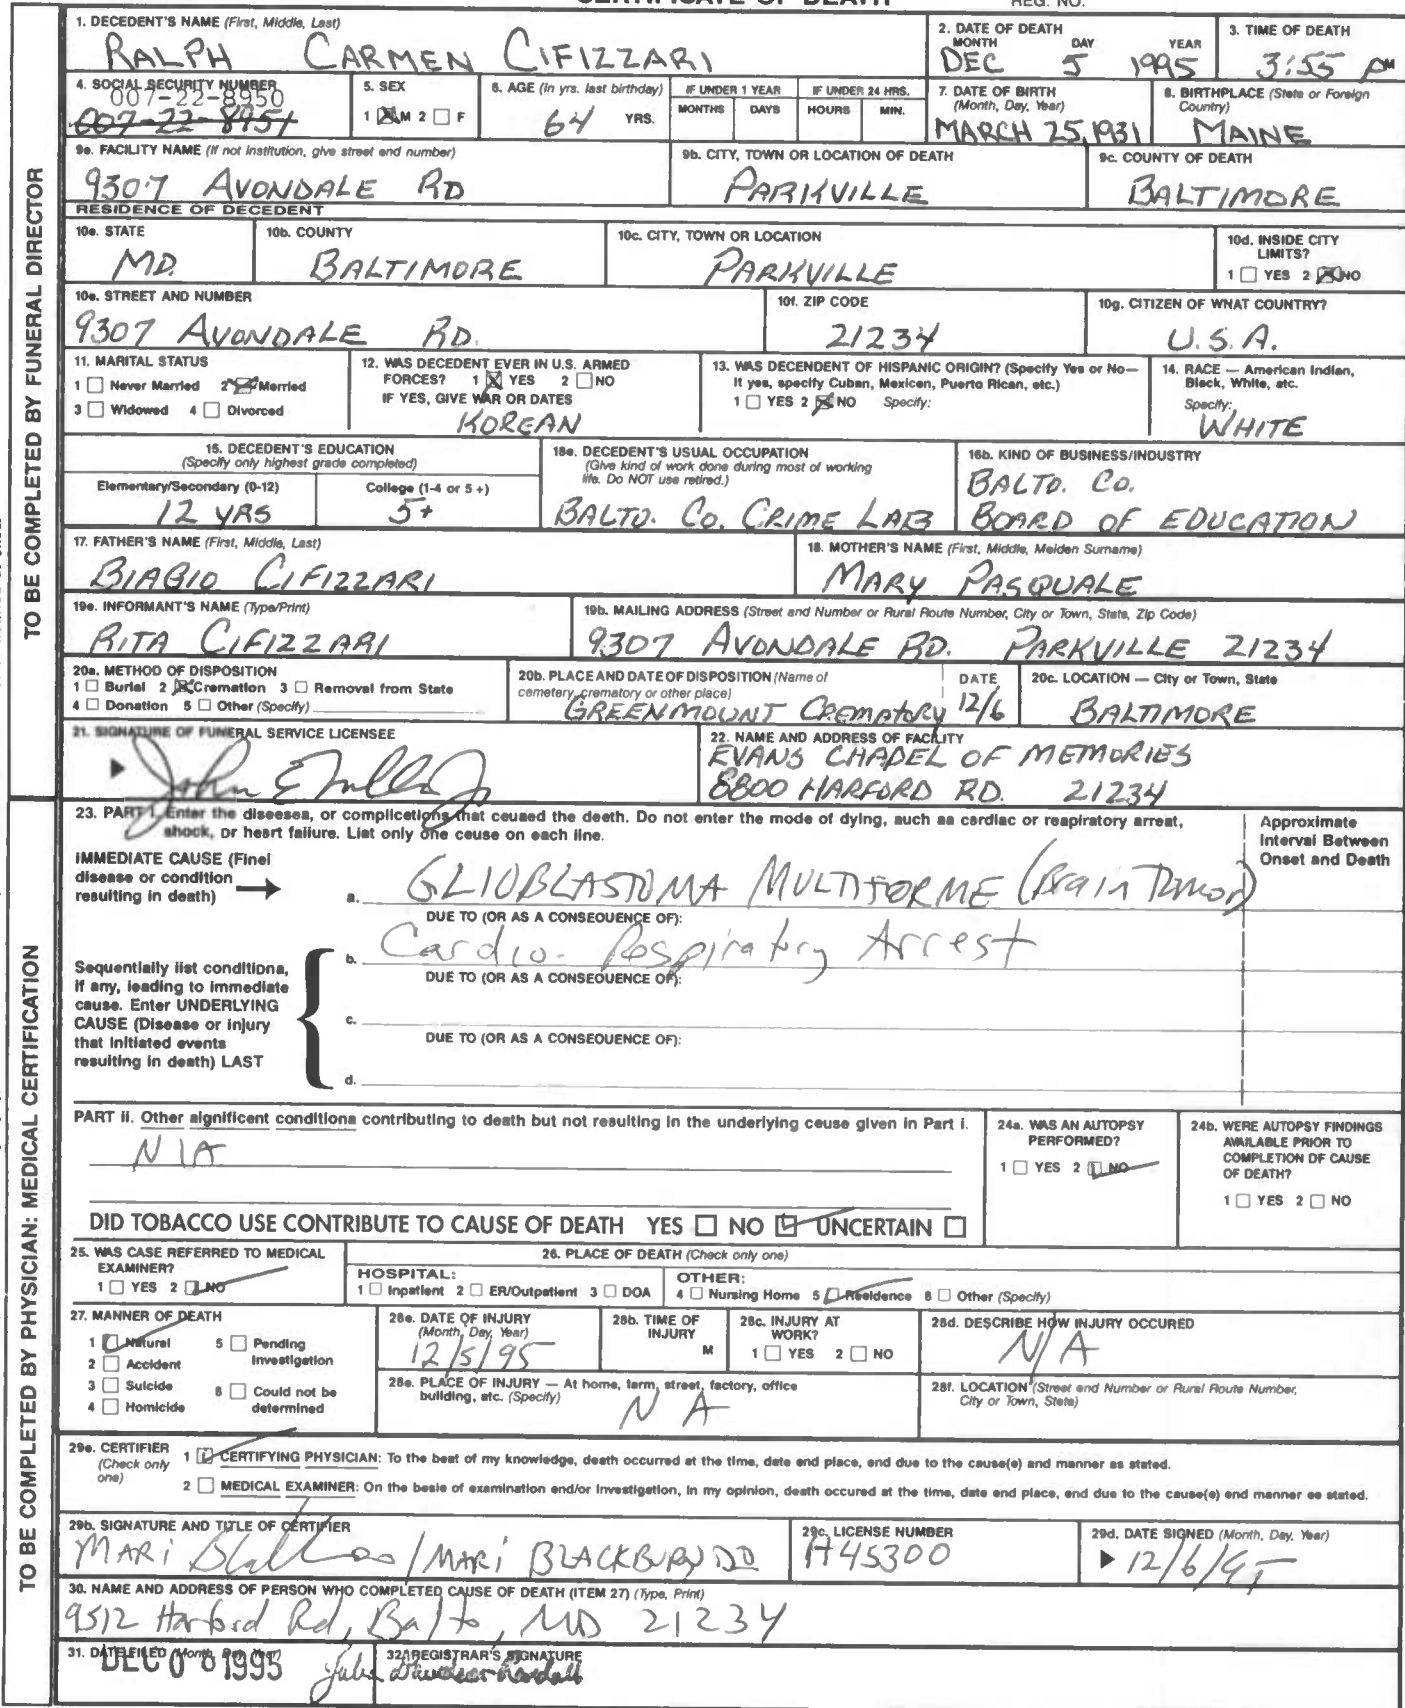 CERTIFICATE OF DEATH
REG. NO.
TO BE COMPLETED BY FUNERAL DIRECTOR
1. DECEDENT'S NAME (First, Middle, Last)
RALPH CARMEN CIFIZZARI
2. DATE OF DEATH
MONTH DAY YEAR
DEC 5 1995
3. TIME OF DEATH
3:55 PM
4. SOCIAL SECURITY NUMBER
007-22-8950
007-22-8951
5. SEX
1 ☒ M 2 ☐ F
6. AGE (In yrs. last birthday)
64 YRS.
IF UNDER 1 YEAR
MONTHS DAYS
IF UNDER 24 HRS.
HOURS MIN.
7. DATE OF BIRTH
(Month, Day, Year)
MARCH 25, 1931
8. BIRTHPLACE (State or Foreign
Country)
MAINE
9a. FACILITY NAME (If not institution, give street and number)
9307 AVONDALE RD
9b. CITY, TOWN OR LOCATION OF DEATH
PARKVILLE
9c. COUNTY OF DEATH
BALTIMORE
RESIDENCE OF DECEDENT
10a. STATE
MD.
10b. COUNTY
BALTIMORE
10c. CITY, TOWN OR LOCATION
PARKVILLE
10d. INSIDE CITY
LIMITS?
1 ☐ YES 2 ☒ NO
10e. STREET AND NUMBER
9307 AVONDALE RD.
10f. ZIP CODE
21234
10g. CITIZEN OF WHAT COUNTRY?
U.S.A.
11. MARITAL STATUS
1 ☐ Never Married 2 ☒ Married
3 ☐ Widowed 4 ☐ Divorced
12. WAS DECEDENT EVER IN U.S. ARMED
FORCES? 1 ☒ YES 2 ☐ NO
IF YES, GIVE WAR OR DATES
KOREAN
13. WAS DECENDENT OF HISPANIC ORIGIN? (Specify Yes or No—
It yes, specify Cuban, Mexican, Puerto Rican, etc.)
1 ☐ YES 2 ☒ NO Specify:
14. RACE — American Indian,
Black, White, etc.
Specify:
WHITE
15. DECEDENT'S EDUCATION
(Specify only highest grade completed)
Elementary/Secondary (0-12)
12 YRS
College (1-4 or 5 +)
5+
16a. DECEDENT'S USUAL OCCUPATION
(Give kind of work done during most of working
life. Do NOT use retired.)
BALTO. CO. CRIME LAB
16b. KIND OF BUSINESS/INDUSTRY
BALTO. CO.
BOARD OF EDUCATION
17. FATHER'S NAME (First, Middle, Last)
BIAGIO CIFIZZARI
18. MOTHER'S NAME (First, Middle, Maiden Surname)
MARY PASQUALE
19a. INFORMANT'S NAME (Type/Print)
RITA CIFIZZARI
19b. MAILING ADDRESS (Street and Number or Rural Route Number, City or Town, State, Zip Code)
9307 AVONDALE RD. PARKVILLE 21234
20a. METHOD OF DISPOSITION
1 ☐ Burial 2 ☒ Cremation 3 ☐ Removal from State
4 ☐ Donation 5 ☐ Other (Specify)
20b. PLACE AND DATE OF DISPOSITION (Name of
cemetery, crematory or other place)
GREENMOUNT CREMATORY
DATE
12/6
20c. LOCATION — City or Town, State
BALTIMORE
21. SIGNATURE OF FUNERAL SERVICE LICENSEE
22. NAME AND ADDRESS OF FACILITY
EVANS CHAPEL OF MEMORIES
8800 HARFORD RD. 21234
TO BE COMPLETED BY PHYSICIAN: MEDICAL CERTIFICATION
23. PART I. Enter the diseases, or complications that caused the death. Do not enter the mode of dying, such as cardiac or respiratory arrest,
shock, or heart failure. List only one cause on each line.
Approximate
Interval Between
Onset and Death
IMMEDIATE CAUSE (Final
disease or condition
resulting in death)
a. GLIOBLASTOMA MULTIFORME (Brain Tumor)
DUE TO (OR AS A CONSEQUENCE OF):
b. Cardio-Respiratory Arrest
DUE TO (OR AS A CONSEQUENCE OF):
Sequentially list conditions,
if any, leading to immediate
cause. Enter UNDERLYING
CAUSE (Disease or injury
that initiated events
resulting in death) LAST
c.
DUE TO (OR AS A CONSEQUENCE OF):
d.
PART II. Other significant conditions contributing to death but not resulting in the underlying cause given in Part I.
N/A
DID TOBACCO USE CONTRIBUTE TO CAUSE OF DEATH YES ☐ NO ☑ UNCERTAIN ☐
24a. WAS AN AUTOPSY
PERFORMED?
1 ☐ YES 2 ☑ NO
24b. WERE AUTOPSY FINDINGS
AVAILABLE PRIOR TO
COMPLETION OF CAUSE
OF DEATH?
1 ☐ YES 2 ☐ NO
25. WAS CASE REFERRED TO MEDICAL
EXAMINER?
1 ☐ YES 2 ☑ NO
26. PLACE OF DEATH (Check only one)
HOSPITAL:
1 ☐ Inpatient 2 ☐ ER/Outpatient 3 ☐ DOA
OTHER:
4 ☐ Nursing Home 5 ☑ Residence 6 ☐ Other (Specify)
27. MANNER OF DEATH
1 ☑ Natural 5 ☐ Pending
Investigation
2 ☐ Accident
3 ☐ Suicide 6 ☐ Could not be
determined
4 ☐ Homicide
28a. DATE OF INJURY
(Month, Day, Year)
12/5/95
28b. TIME OF
INJURY
M
28c. INJURY AT
WORK?
1 ☐ YES 2 ☐ NO
28d. DESCRIBE HOW INJURY OCCURED
N/A
28e. PLACE OF INJURY — At home, farm, street, factory, office
building, etc. (Specify)
N A
28f. LOCATION (Street and Number or Rural Route Number,
City or Town, State)
29a. CERTIFIER
(Check only
one)
1 ☑ CERTIFYING PHYSICIAN: To the best of my knowledge, death occurred at the time, date and place, and due to the cause(s) and manner as stated.
2 ☐ MEDICAL EXAMINER: On the basis of examination and/or investigation, in my opinion, death occured at the time, date and place, and due to the cause(s) and manner as stated.
29b. SIGNATURE AND TITLE OF CERTIFIER
MARI / MARI BLACKBURN DO
29c. LICENSE NUMBER
H45300
29d. DATE SIGNED (Month, Day, Year)
12/6/95
30. NAME AND ADDRESS OF PERSON WHO COMPLETED CAUSE OF DEATH (ITEM 27) (Type, Print)
9512 Harford Rd, Balto, MD 21234
31. DATE FILED (Month, Day, Year)
DEC 08 1995
32. REGISTRAR'S SIGNATURE